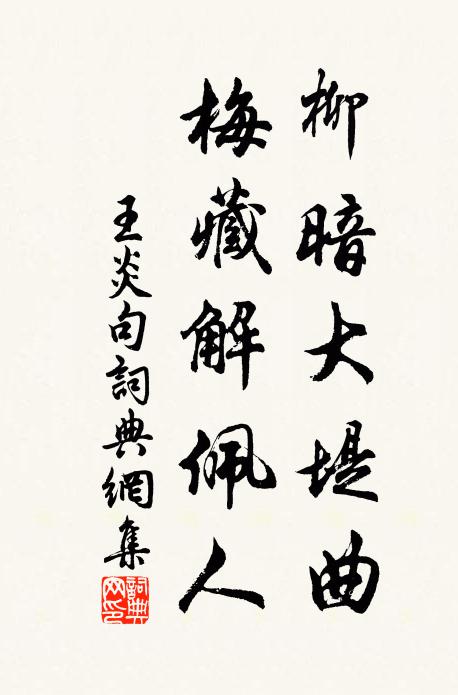 柳暗大堤曲
梅藏解佩人
王炎句詞典網集
詞典網印